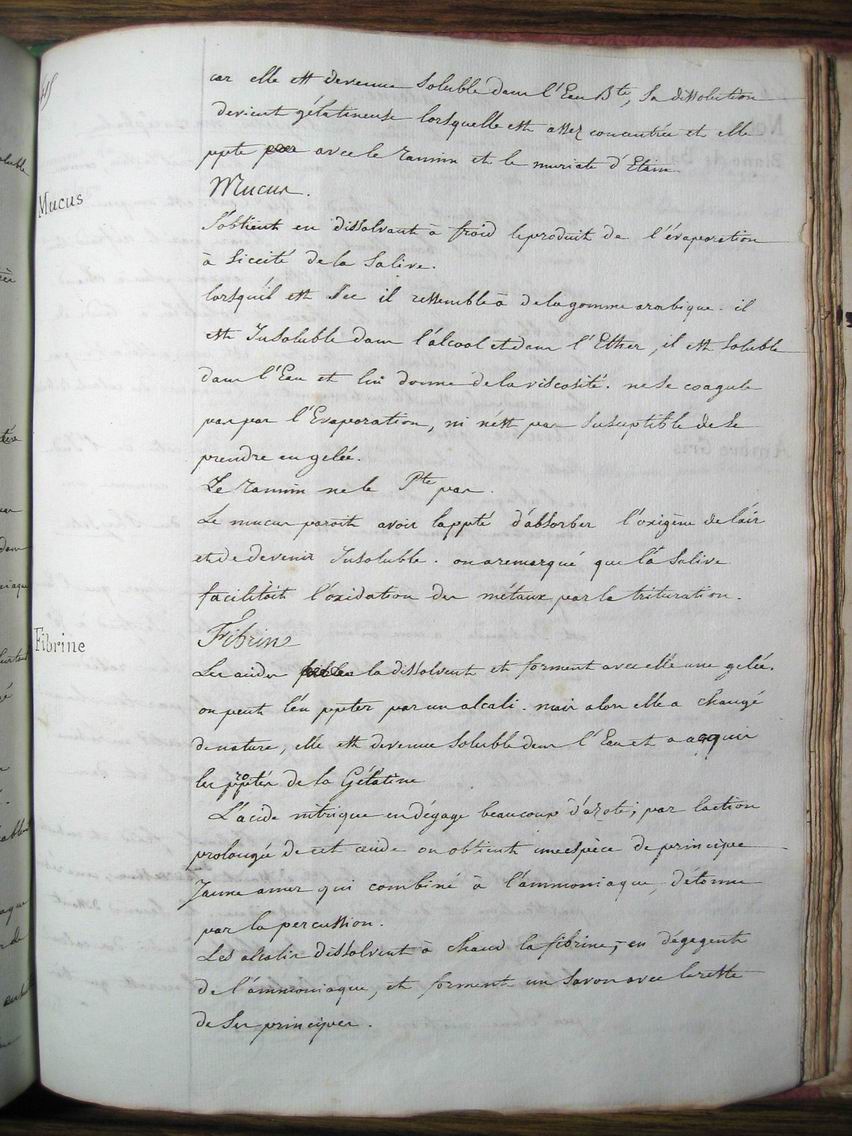 car elle est devenue soluble dans l'Eau Bte, sa dissolution
devient gélatineuse lorsquelle est assez concentrée et elle
ppte avec le tannin et le muriate d'Etain.
Mucus
Mucus.
S'obtient en dissolvant à froid le produit de l'évaporation
à siccité de la salive.
lorsquil est sec il ressemble à de la gomme arabique. il
est Insoluble dans l'álcool et dans l'Ether, il est soluble
dans l'Eau et lui donne de la viscosité. ne se coagule
pas par l'Evaporation, ni n'est pas susceptible de se
prendre en gelée.
Le tannin ne le Pte pas.
Le mucus paroit avoir lappté d'absorber l'oxigène de l'air
et de devenir Insoluble. on a remarqué que la salive
facilitoit l'oxidation des métaux par la trituration.
Fibrine
Fibrine
Les acides la dissolvent et forment avec elle une gelée.
on peut l'en ppter par un alcali. mais alors elle a changé
de nature, elle est devenue soluble dans l'Eau et a acquis
les pptés de la Gélatine
L'acide nitrique en dégage beaucoup d'azote; par laction
prolongée de cet acide on obtient une espèce de principe
Jaune amer qui combiné à l'ammoniaque, détonne
par la percussion.
Les alcalis dissolvent à chaud la fibrine, en dégagent
de l'ammoniaque, et forment un savon avec le reste
de ses principes.